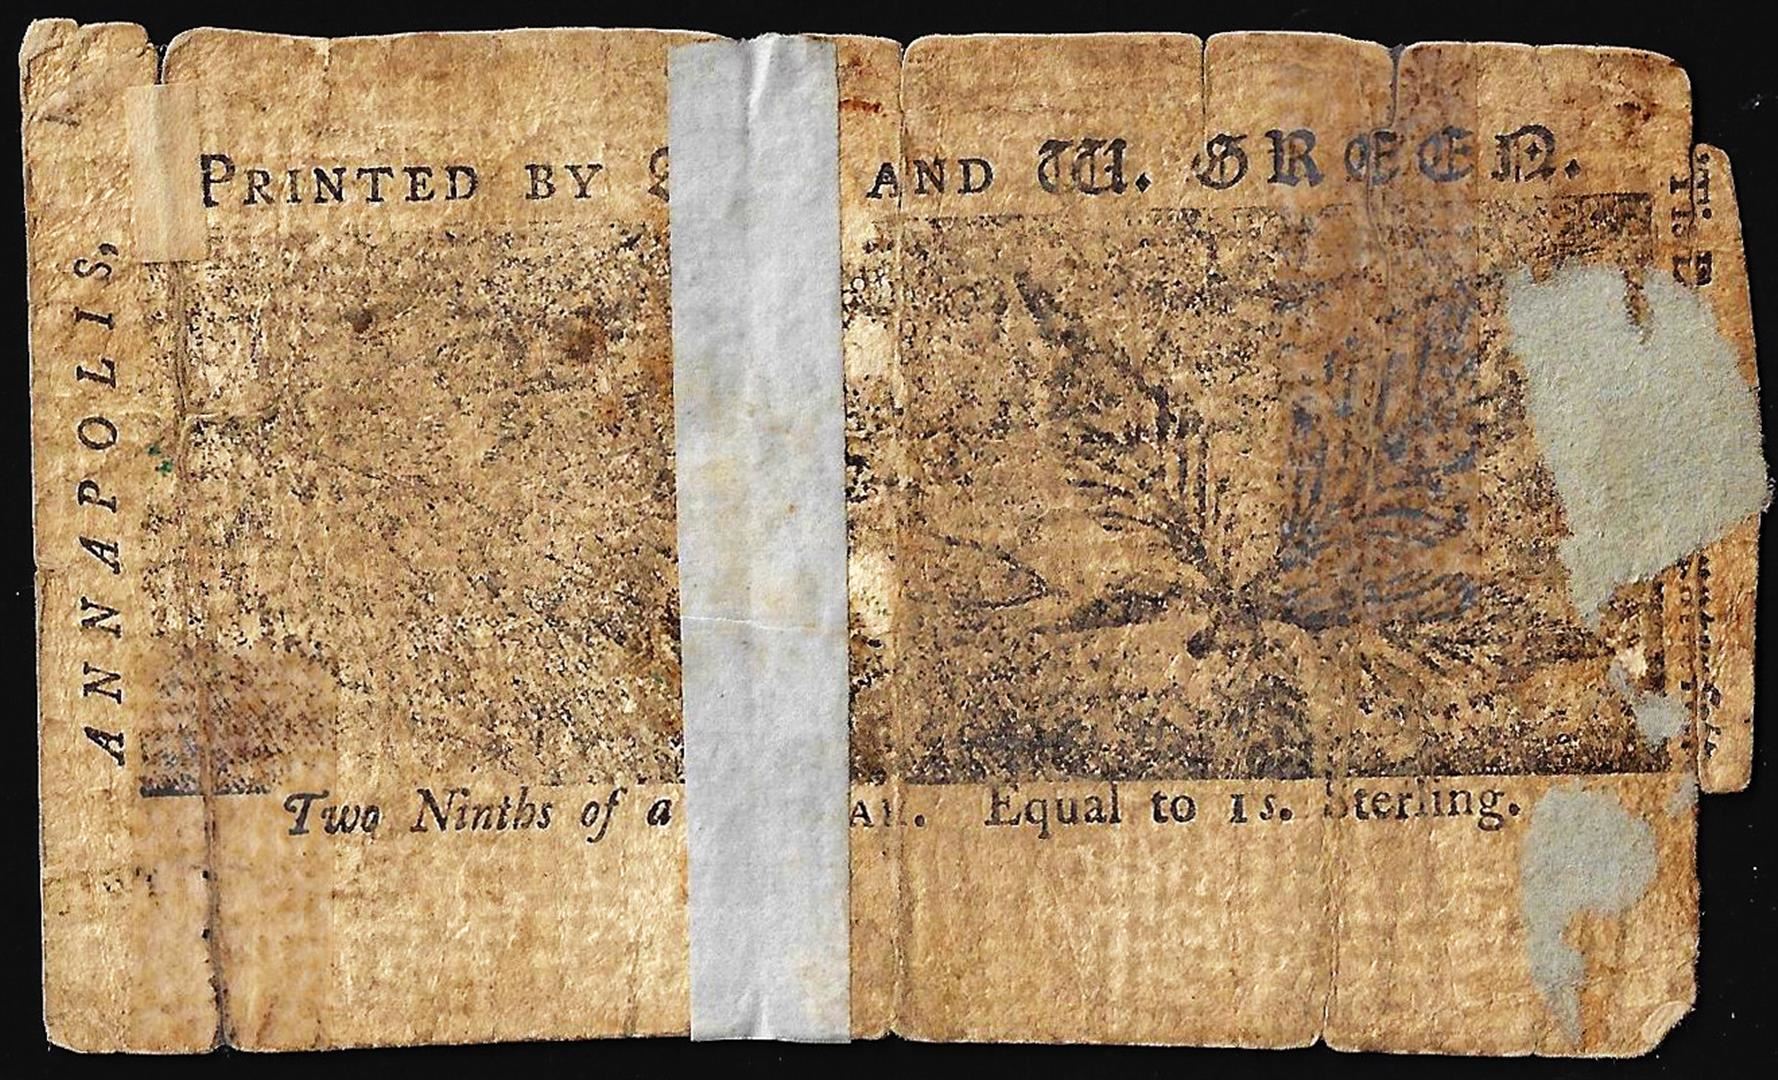 PRINTED BY AND W. GREEN.
ANNAPOLIS,
Two Ninths of a AR. Equal to 1s. Sterling.